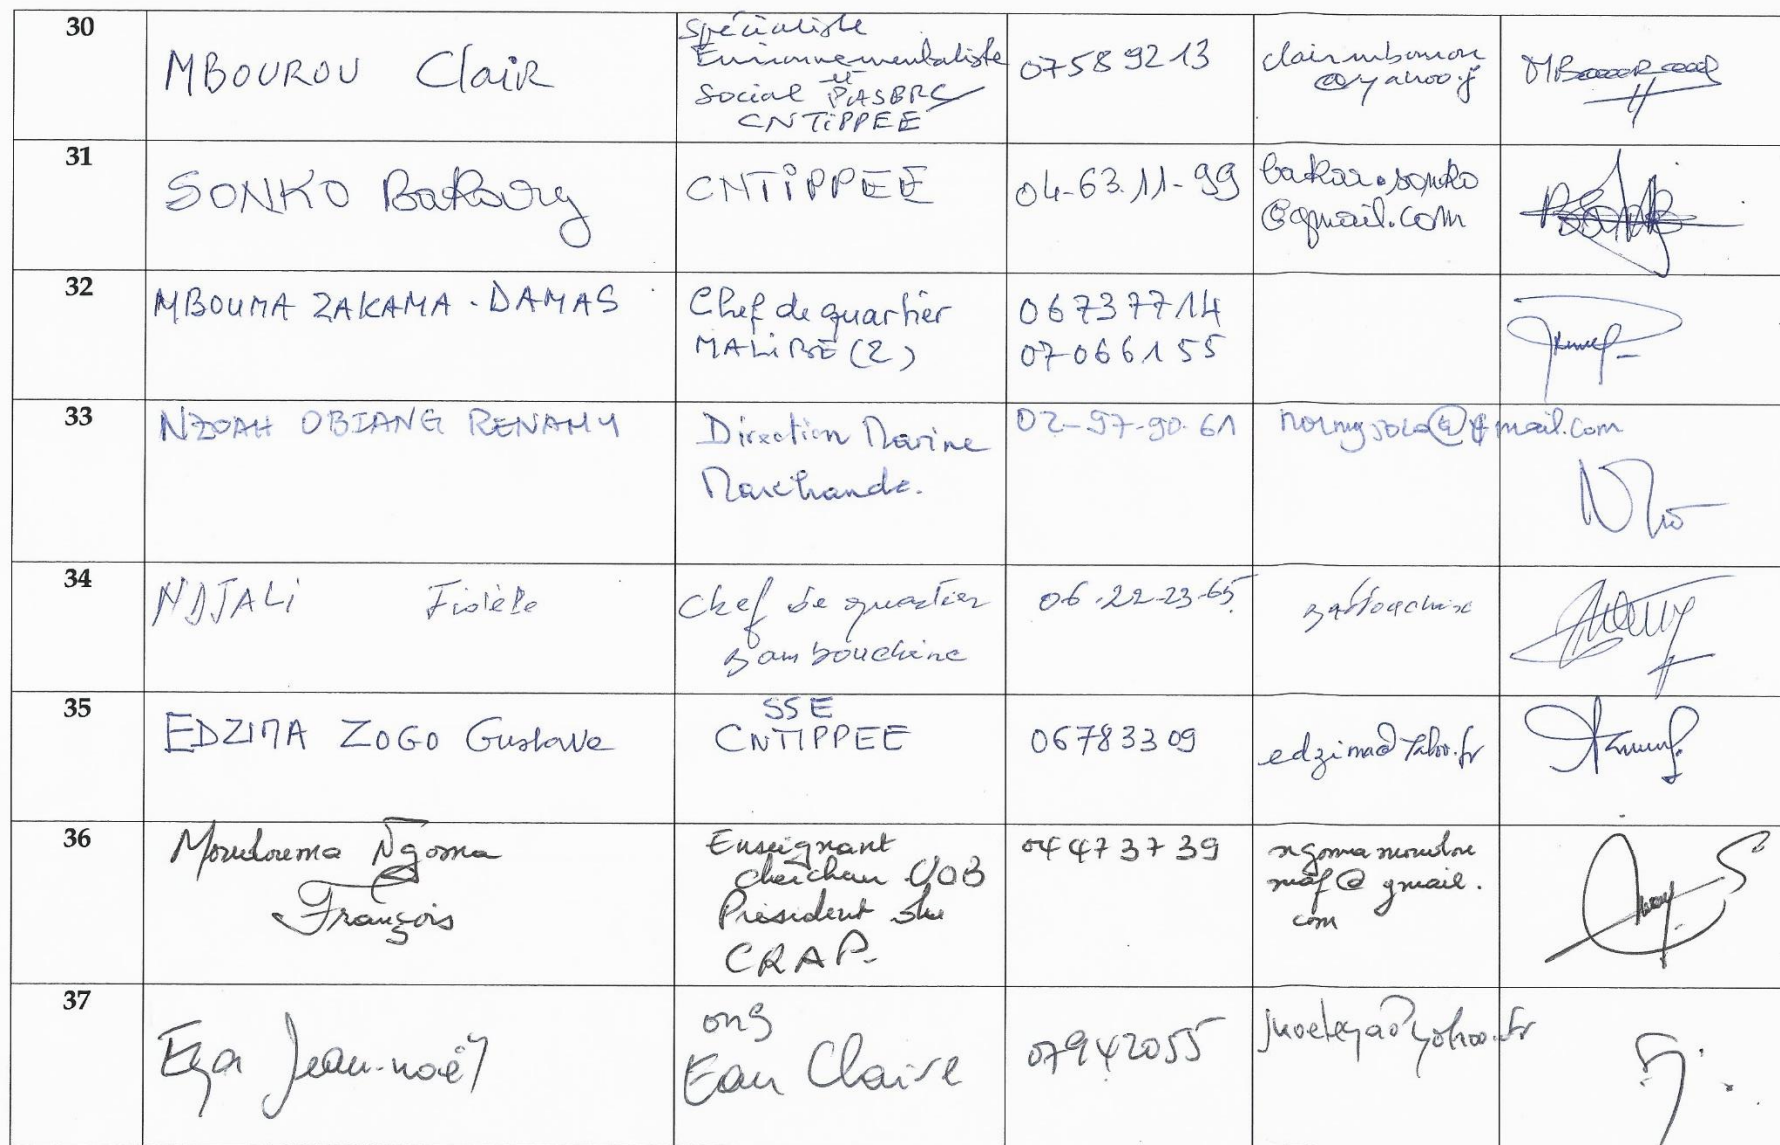 30
MBOUROU Clair
Spécialiste
Environnementaliste
et
Social PASBRC
CNTIPPEE
07589213
clairmbourou
@yahoo.f
31
SONKO Bakary
CNTIPPEE
04-63.11-99
bakar.sonko
@gmail.com
32
MBOUMA ZAKAMA - DAMAS
Chef de quartier
MALIBE (2)
06737714
07066155
33
NZOAH OBIANG RENAMY
Direction Marine
Marchande.
02-97-90-61
@gmail.com
34
NDJALI Fidèle
Chef de quartier
bambouchine
06.22-23-65
35
EDZIMA ZOGO Gustave
SSE
CNTIPPEE
06783309
edzima@yahoo.fr
36
Moudouma Ngoma
François
Enseignant
chercheur UOB
Président du
CRAP.
04473739
ngomamoudou
maf@gmail.
com
37
Eya Jean-noël
ong
Eau Claire
07942055
jnoeleya@yahoo.fr